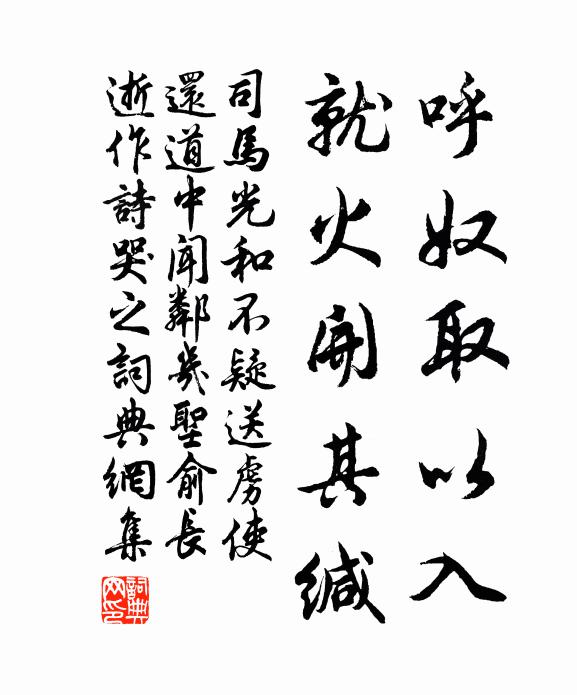 呼奴取以入
就火開其緘
司馬光和不疑送虜使
還道中聞鄰幾聖俞長
逝作詩哭之詞典網集
詞典網印